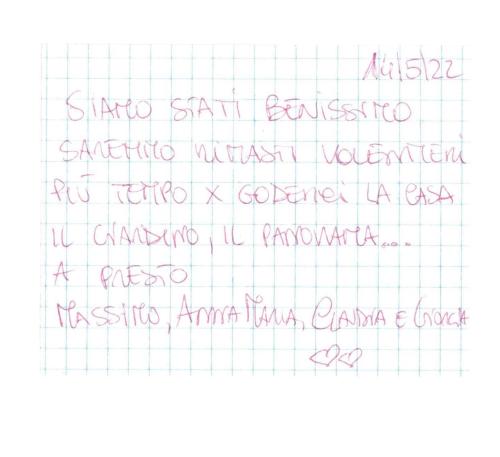 14/5/22
SIAMO STATI BENISSIMO
SAREMMO RIMASTI VOLENTIERI
PIÙ TEMPO X GODERCI LA CASA
IL GIARDINO, IL PANORAMA...
A PRESTO
MASSIMO, ANNAMARIA, CLAUDIA E GIORGIA